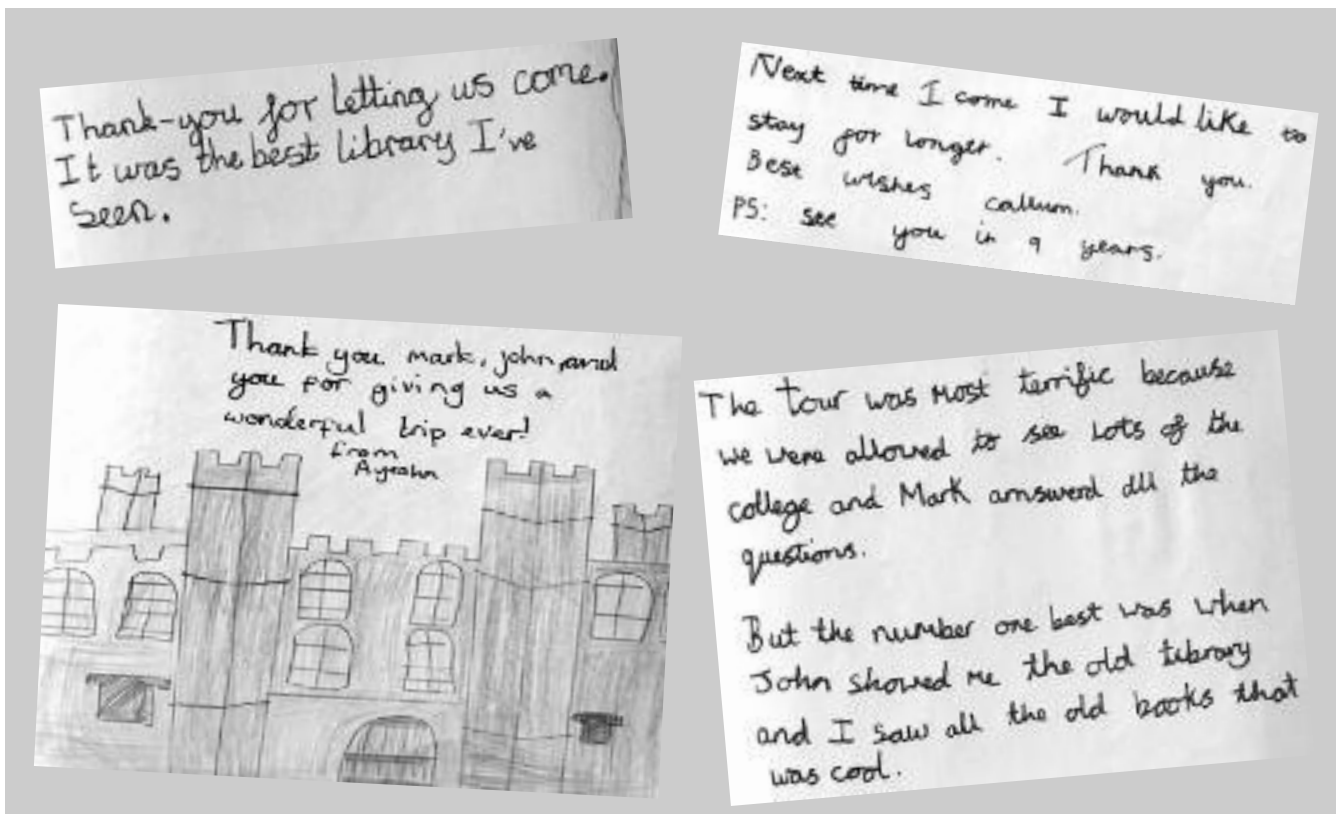 Thank-you for letting us come.
It was the best library I've
seen.
Next time I come I would like to
stay for longer. Thank you.
Best wishes callum.
PS: see you in 9 years.
Thank you mark, john, and
you for giving us a
wonderful trip ever!
from
The tour was most terrific because
we were allowed to see lots of the
college and Mark amswerd all the
questions.
But the number one best was when
John showed me the old library
and I saw all the old books that
was cool.